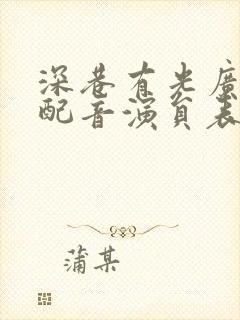 深巷有光廣
配音演員表
蒲某